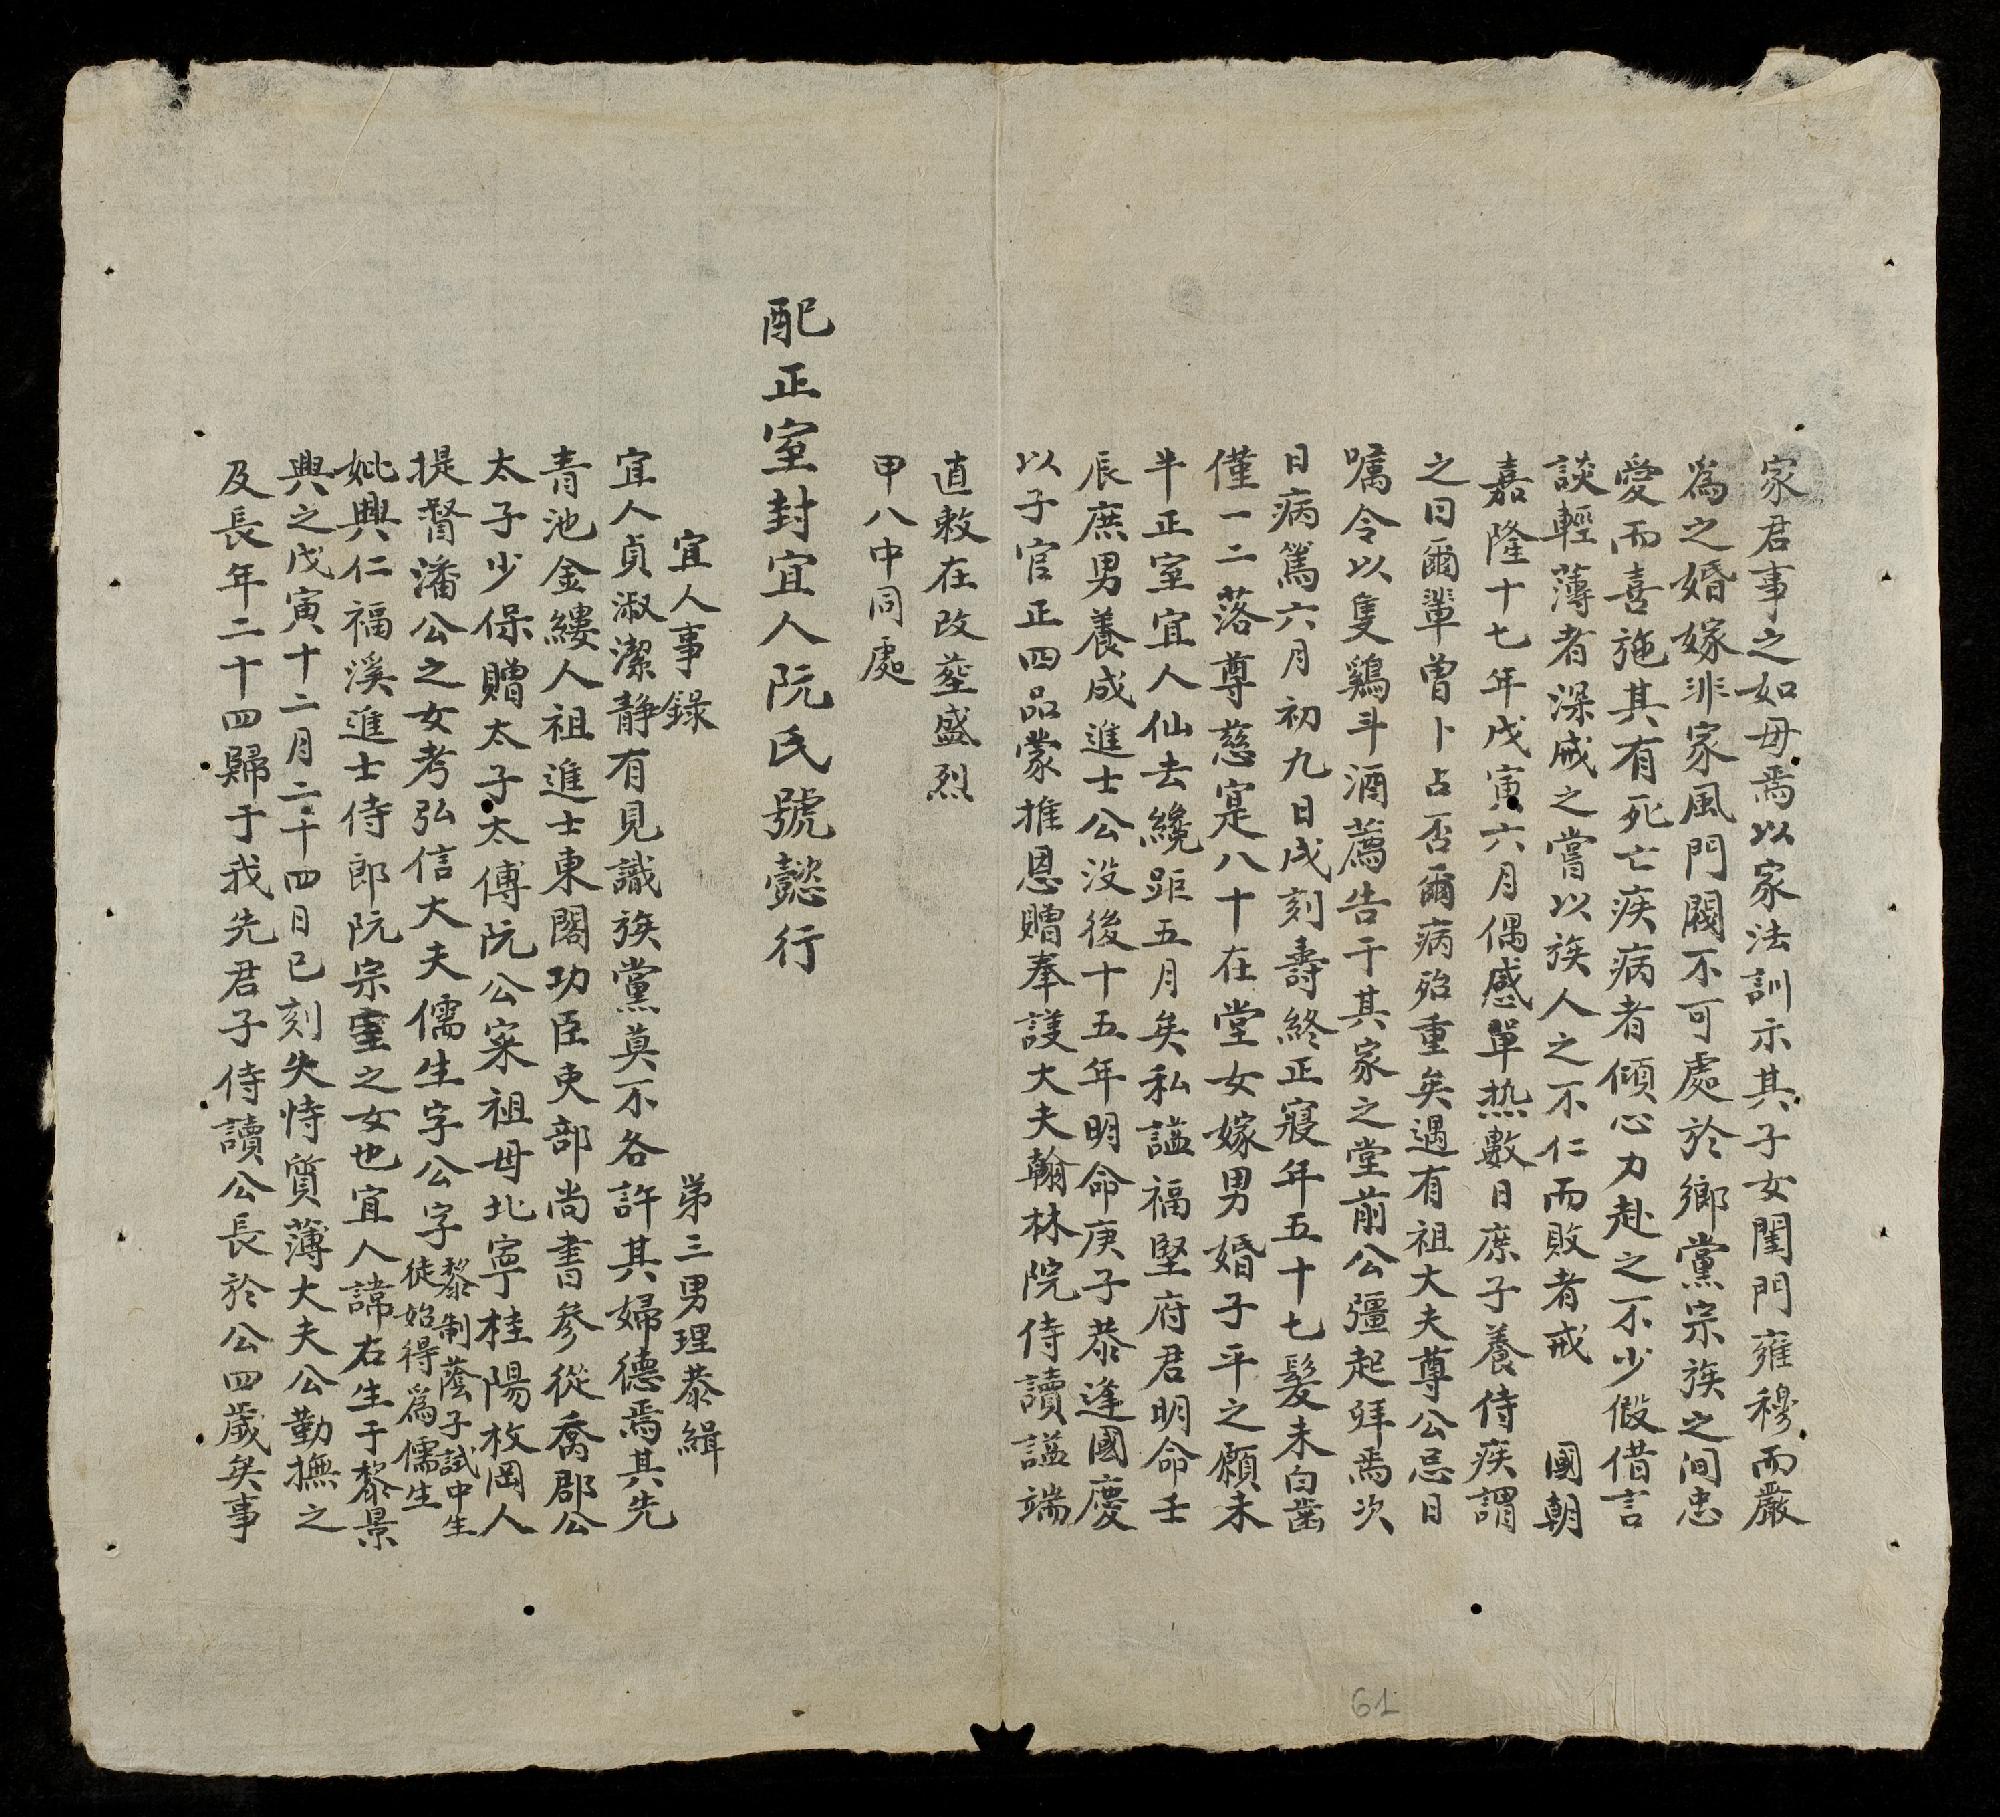 家君事之如母焉以家法訓示其子女閨門雍穆而嚴
爲之婚嫁非家風門閥不可處於鄉黨宗族之间忠
愛而喜施其有死亡疾病者傾心力赴之不少假借言
談輕薄者深戒之嘗以族人之不仁而敗者戒　國朝
嘉隆十七年戊寅六月偶感單热數日庶子養侍疾謂
之曰爾輩曾卜占否爾病殆重矣遇有祖大夫尊公忌日
囑令以隻鷄斗酒薦告于其家之堂前公彊起拜焉次
日病篤六月初九日戌刻壽終正寢年五十七髮未白齒
僅一二落尊慈寔八十在堂女嫁男婚子平之願未
半正室宜人仙去纔距五月矣私謚福堅府君明命壬
辰庶男養成進士公没後十五年明命庚子恭逢國慶
以子官正四品蒙推恩贈奉議大夫翰林院侍讀謚端
直敕在改塟盛烈
甲八中同處
配正室封宜人阮氏號懿行
宜人事録　第三男理恭緝
宜人貞淑潔静有見識族黨莫不各許其婦德焉其先
青池金縷人祖進士東閣功臣吏部尚書參從喬郡公
太子少保贈太子太傅阮公寀祖母北寧桂陽枚岡人
提督潘公之女考弘信大夫儒生字公字黎制蔭子試中生
徒始得爲儒生
妣興仁福溪進士侍郎阮宗室之女也宜人諱右生于黎景
興之戊寅十二月二十四日已刻失恃質薄大夫公勤撫之
及長年二十四歸于我先君子侍讀公長於公四歲矣事
61